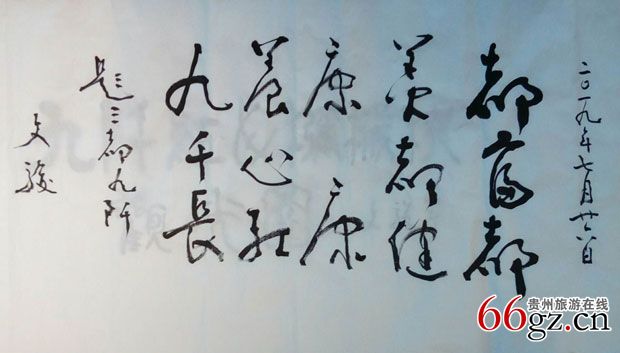 二〇一九年七月廿日
都富都
美都健
康康
養心
九千長
題三都九阡
文骏
贵州旅游在线
66gz.cn